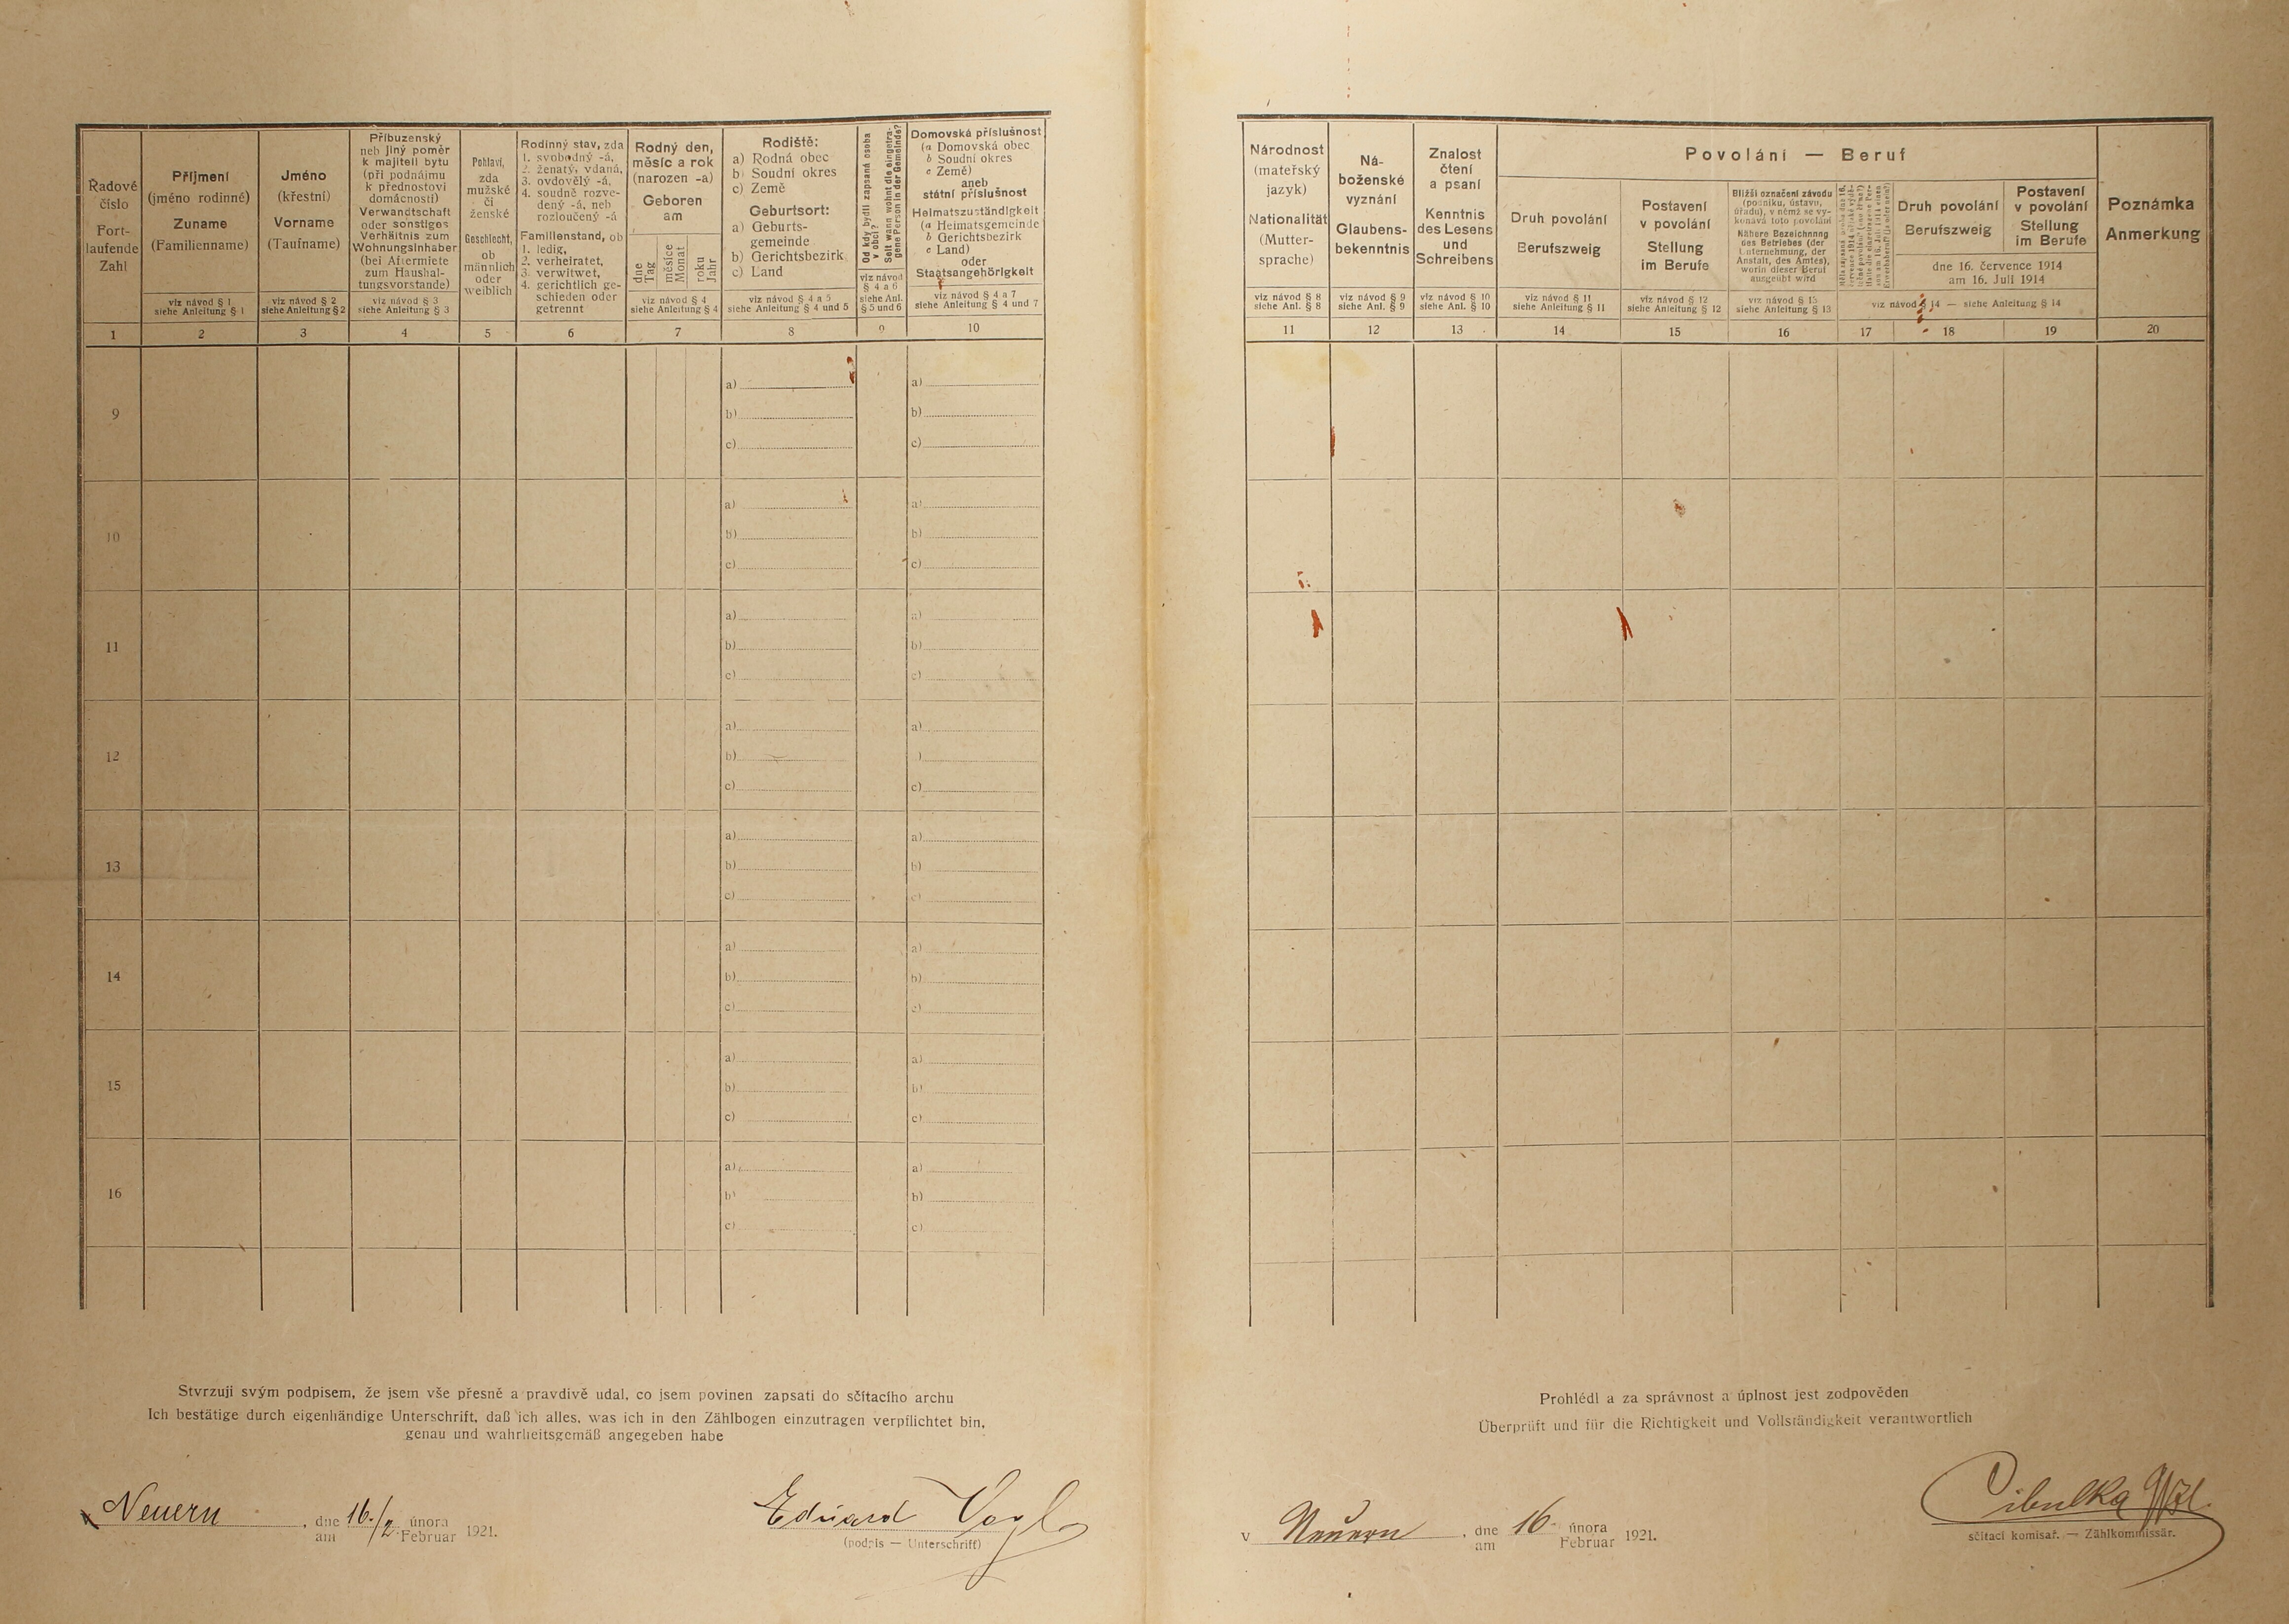 Řadové
číslo
Fort-
laufende
Zahl
1
Příjmení
(jméno rodinné)
Zuname
(Familienname)
viz návod § 1
siehe Anleitung § 1
2
Jméno
(křestní)
Vorname
(Taufname)
viz návod § 2
siehe Anleitung § 2
3
Příbuzenský
neb jiný poměr
k majiteli bytu
(při podnájmu
k přednostovi
domácnosti)
Verwandtschaft
oder sonstiges
Verhältnis zum
Wohnungsinhaber
(bei Aftermiete
zum Haushal-
tungsvorstande)
viz návod § 3
siehe Anleitung § 3
4
Pohlaví,
zda
mužské
či
ženské
Geschlecht,
ob
männlich
oder
weiblich
5
Rodinný stav, zda
1. svobodný -á,
2. ženatý, vdaná,
3. ovdovělý -á,
4. soudně rozve-
dený -á, neb
rozloučený -á
Familienstand, ob
1. ledig,
2. verheiratet,
3. verwitwet,
4. gerichtlich ge-
schieden oder
getrennt
6
Rodný den,
měsíc a rok
(narozen -a)
Geboren
am
dne
Tag
měsíce
Monat
roku
Jahr
viz návod § 4
siehe Anleitung § 4
7
Rodiště:
a) Rodná obec
b) Soudní okres
c) Země
Geburtsort:
a) Geburts-
gemeinde
b) Gerichtsbezirk
c) Land
viz návod § 4 a 5
siehe Anleitung § 4 und 5
8
Od kdy bydlí zapsaná osoba
v obci?
Seit wann wohnt die eingetra-
gene Person in der Gemeinde?
viz návod
§ 4 a 6
siehe Anl.
§ 5 und 6
9
Domovská příslušnost
(a Domovská obec
b Soudní okres
c Země)
aneb
státní příslušnost
Heimatszuständigkeit
(a Heimatsgemeinde
b Gerichtsbezirk
c Land)
oder
Staatsangehörigkeit
viz návod § 4 a 7
siehe Anleitung § 4 und 7
10
Národnost
(mateřský
jazyk)
Nationalität
(Mutter-
sprache)
viz návod § 8
siehe Anl. § 8
11
Ná-
boženské
vyznání
Glaubens-
bekenntnis
viz návod § 9
siehe Anl. § 9
12
Znalost
čtení
a psaní
Kenntnis
des Lesens
und
Schreibens
viz návod § 10
siehe Anl. § 10
13
Povolání — Beruf
Druh povolání
Berufszweig
viz návod § 11
siehe Anleitung § 11
14
Postavení
v povolání
Stellung
im Berufe
viz návod § 12
siehe Anleitung § 12
15
Bližší označení závodu
(podniku, ústavu,
úřadu), v němž se vy-
konává toto povolání
Nähere Bezeichnung
des Betriebes (der
Unternehmung, der
Anstalt, des Amtes),
worin dieser Beruf
ausgeübt wird
viz návod § 13
siehe Anleitung § 13
16
17
Druh povolání
Berufszweig
Postavení
v povolání
Stellung
im Berufe
dne 16. července 1914
am 16. Juli 1914
viz návod § 14 — siehe Anleitung § 14
18
19
Poznámka
Anmerkung
20
9
a) a)
b) b)
c) c)
10
a) a)
b) b)
c) c)
11
a) a)
b) b)
c) c)
12
a) a)
b) )
c) c)
13
a) a)
b) b)
c) c)
14
a) a)
b) b)
c) c)
15
a) a)
b) b)
c) c)
16
a) a)
b) b)
c) c)
Stvrzuji svým podpisem, že jsem vše přesně a pravdivě udal, co jsem povinen zapsati do sčítacího archu
Ich bestätige durch eigenhändige Unterschrift, daß ich alles, was ich in den Zählbogen einzutragen verpflichtet bin,
genau und wahrheitsgemäß angegeben habe
v Neuern, dne 16./2. února 1921.
am Februar
Eduard Vogl
(podpis — Unterschrift)
Prohlédl a za správnost a úplnost jest zodpověden
Überprüft und für die Richtigkeit und Vollständigkeit verantwortlich
v Neuern, dne 16. února 1921.
am Februar
Cibulka
sčítací komisař. — Zählkommissär.